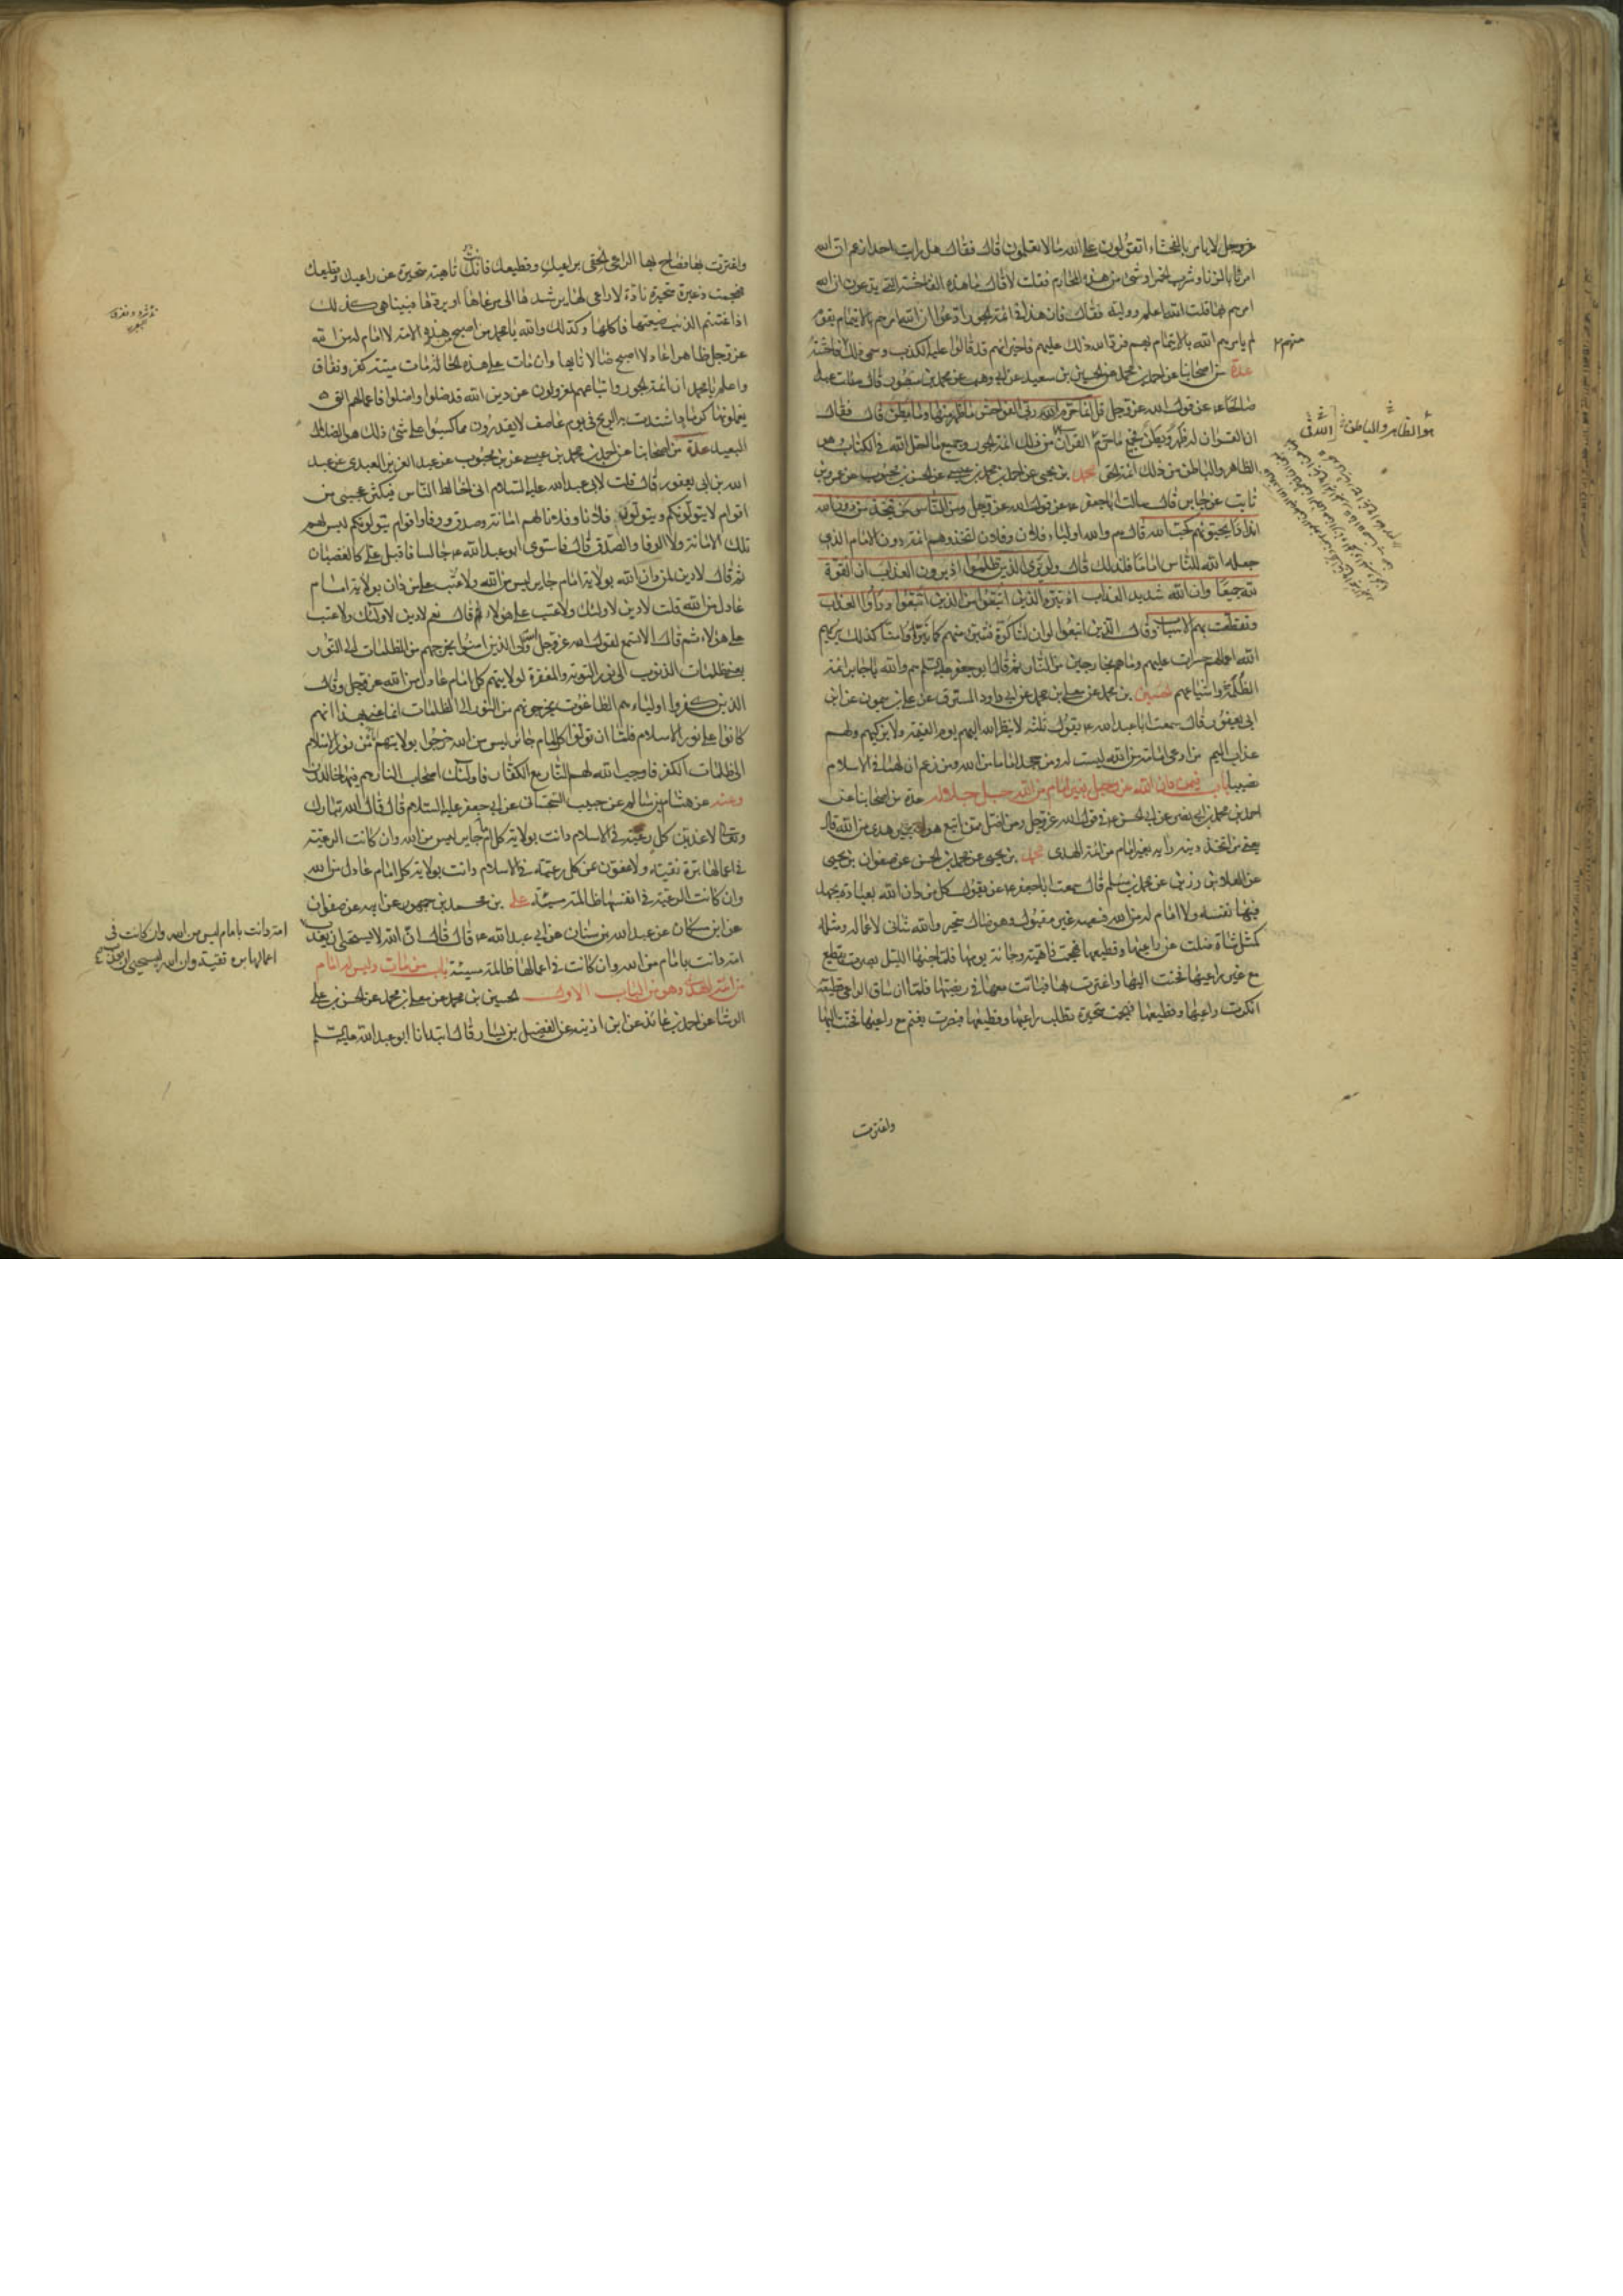 عزوجل لا يامر بالفحشاء اتقولون على الله ما لا تعلمون قال فقال هل رايت احدا زعم ان الله
امرنا بالزنا وشرب الخمر او شئ من هذه المحارم فقلت لا قال ما هذه الفاحشة التي يدعون ان الله
امرهم بها قلت الله اعلم ووليه فقال فان هذا في ائمة الجور ادعوا ان الله امرهم بالايتمام بقوم
لم يامرهم الله بالايتمام بهم فرد الله ذلك عليهم فاخبر انهم قد قالوا عليه الكذب وسمى ذلك فاحشة
منهم
عدة من اصحابنا عن احمد بن محمد عن الحسين بن سعيد عن ابي وهب عن محمد بن منصور قال سالت عبدا
صالحا عن قول الله عزوجل قل انما حرم ربي الفواحش ما ظهر منها وما بطن قال فقال
ان القران له ظهر وبطن فجميع ما حرم القران من ذلك ائمة الجور وجميع ما احل الله في الكتاب وهي
هو الظاهر والباطن
الظاهر والباطن من ذلك ائمة الحق محمد بن يحيى عن احمد بن محمد بن عيسى عن الحسن بن محبوب عن عمرو بن
ثابت عن جابر قال سالت ابا جعفر ع عن قول الله عزوجل ومن الناس من يتخذ من دون الله
اندادا يحبونهم كحب الله قال هم والله اولياء فلان وفلان اتخذوهم ائمة دون الامام الذي
جعله الله للناس اماما فلذلك قال ولو يرى الذين ظلموا اذ يرون العذاب ان القوة
لله جميعا وان الله شديد العذاب اذ تبرء الذين اتبعوا من الذين اتبعوا وراوا العذاب
وتقطعت بهم الاسباب وقال الذين اتبعوا لو ان لنا كرة فنتبرء منهم كما تبرؤا منا كذلك يريهم
الله اعمالهم حسرات عليهم وما هم بخارجين من النار ثم قال ابو جعفر عليه السلم هم والله يا جابر ائمة
الظلمة واشياعهم الحسين بن محمد عن معلى بن محمد عن ابي داود المسترق عن علي بن ميمون عن ابن
ابي يعفور قال سمعت ابا عبد الله ع يقول ثلثة لا ينظر الله اليهم يوم القيمة ولا يزكيهم ولهم
عذاب اليم من ادعى امامة من الله ليست له ومن جحد اماما من الله ومن زعم ان لهما في الاسلام
نصيبا باب فيمن دان الله عزوجل بغير امام من الله جل جلاله عدة من اصحابنا عن
احمد بن محمد بن ابي نصر عن ابي الحسن ع في قول الله عزوجل ومن اضل ممن اتبع هواه بغير هدى من الله قال
يعني من اتخذ دينه رايه بغير امام من ائمة الهدى محمد بن يحيى عن محمد بن الحسن عن صفوان بن يحيى
عن العلاء بن رزين عن محمد بن مسلم قال سمعت ابا جعفر ع يقول كل من دان الله بعبادة يجهد
فيها نفسه ولا امام له من الله فسعيه غير مقبول وهو ضال متحير والله شانئ لاعماله ومثله
كمثل شاة ضلت عن راعيها وقطيعها فهجمت ذاهبة وجائية يومها فلما جنها الليل بصرت بقطيع
مع غير راعيها فحنت اليها واغترت بها فباتت معها في ربضتها فلما ان ساق الراعي قطيعه
انكرت راعيها وقطيعها فهجمت متحيرة تطلب راعيها وقطيعها فبصرت بغنم مع راعيها فحنت اليها
واغترت
واغترت بها فصاح بها الراعي الحقي براعيك وقطيعك فانك تائهة متحيرة عن راعيك وقطيعك
فهجمت ذعرة متحيرة نادة لا راعي لها يرشدها الى مرعاها او يردها فبيناهي كذلك
اذا اغتنم الذئب ضيعتها فاكلها وكذلك والله يا محمد من اصبح من هذه الامة لا امام له من الله
عزوجل ظاهرا عادلا اصبح ضالا تائها وان مات على هذه الحالة مات ميتة كفر ونفاق
واعلم يا محمد ان ائمة الجور واتباعهم لمعزولون عن دين الله قد ضلوا واضلوا فاعمالهم التي
يعملونها كرماد اشتدت به الريح في يوم عاصف لا يقدرون مما كسبوا على شئ ذلك هو الضلال
البعيد عدة من اصحابنا عن احمد بن محمد بن عيسى عن بن محبوب عن عبد العزيز العبدي عن عبد
الله بن ابي يعفور قال قلت لابي عبد الله عليه السلام اني اخالط الناس فيكثر عجبي من
اقوام لا يتولونكم ويتولون فلانا وفلانا لهم امانة وصدق ووفا واقوام يتولونكم ليس لهم
تلك الامانة ولا الوفا والصدق قال فاستوى ابو عبد الله ع جالسا فاقبل علي كالغضبان
ثم قال لا دين لمن دان الله بولاية امام جاير ليس من الله ولا عتب على من دان بولاية امام
عادل من الله قلت لا دين لاولئك ولا عتب على هولاء قال نعم لا دين لاولئك ولا عتب
على هؤلاء ثم قال الا تسمع لقول الله عزوجل الله ولي الذين امنوا يخرجهم من الظلمات الى النور
يعني ظلمات الذنوب الى نور التوبة والمغفرة لولايتهم كل امام عادل من الله عزوجل وقال
الذين كفروا اولياءهم الطاغوت يخرجونهم من النور الى الظلمات انما عني بهذا انهم
كانوا على نور الاسلام فلما ان تولوا كل امام جائر ليس من الله خرجوا بولايتهم من نور الاسلام
الى ظلمات الكفر فاوجب الله لهم النار مع الكفار فاولئك اصحاب النار هم فيها خالدون
وعنه عن هشام بن سالم عن حبيب السجستاني عن ابي جعفر عليه السلام قال قال الله تبارك
وتعالى لاعذبن كل رعية في الاسلام دانت بولاية كل امام جاير ليس من الله وان كانت الرعية
في اعمالها برة تقية ولاعفون عن كل رعية في الاسلام دانت بولاية كل امام عادل من الله
وان كانت الرعية في انفسها ظالمة مسيئة علي بن محمد بن جمهور عن ابيه عن صفوان
عن ابن مسكان عن عبد الله بن سنان عن ابي عبد الله ع قال قال ان الله لا يستحيي ان يعذب
امة دانت بامام ليس من الله وان كانت في
اعمالها برة تقية وان الله ليستحيي ان يعذب
امة دانت بامام من الله وان كانت في اعمالها ظالمة مسيئة باب من مات وليس له امام
من ائمة الهدى وهو من الباب الاول الحسين بن محمد عن معلى بن محمد عن الحسن بن علي
الوشا عن احمد بن عائذ عن ابن اذينة عن الفضيل بن يسار قال ابتدانا ابو عبد الله عليه السلم